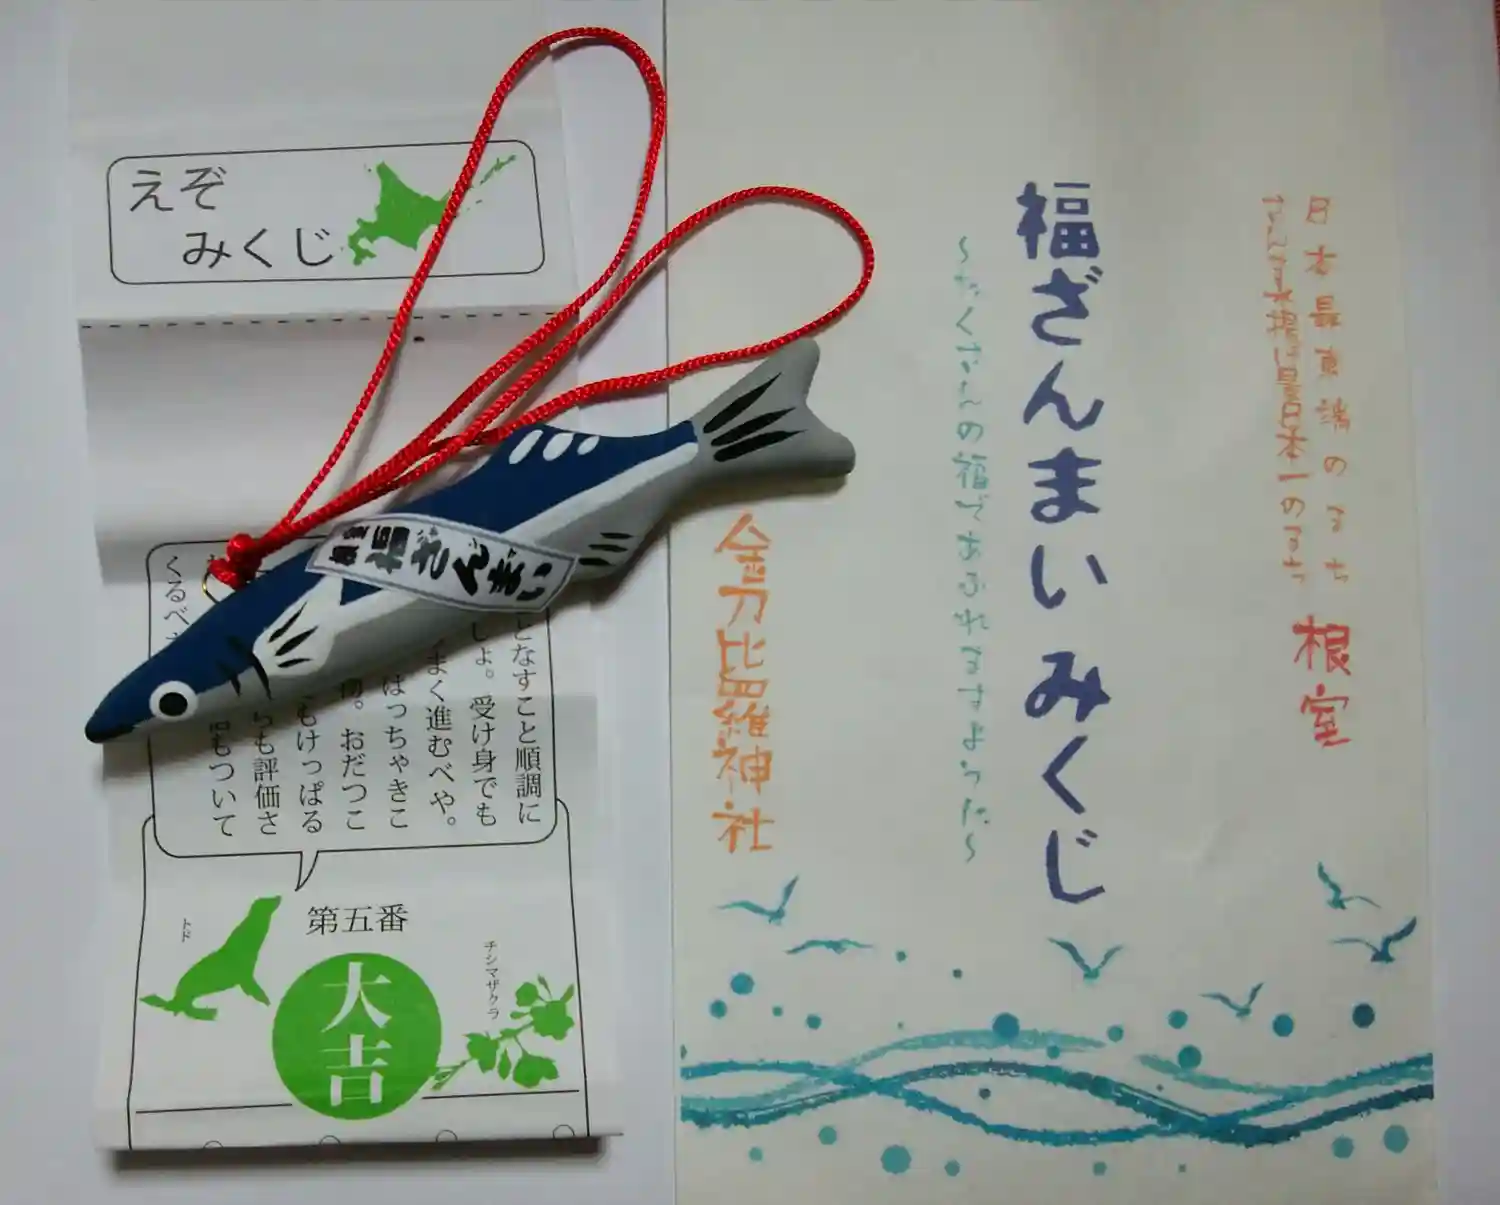 えぞ
みくじ
となすこと順調に
しょ。受け身でも
まく進むべや。
はっちゃきこ
。おだつこ
もけっぱる
も評価さ
もついて
くるべ
第五番
大吉
トド
チシマザクラ
根室
福ざんまい
日本最東端のまち
さんま水揚げ量日本一のまち
根室
福ざんまいみくじ
〜たくさんの福であふれますように〜
金刀比羅神社